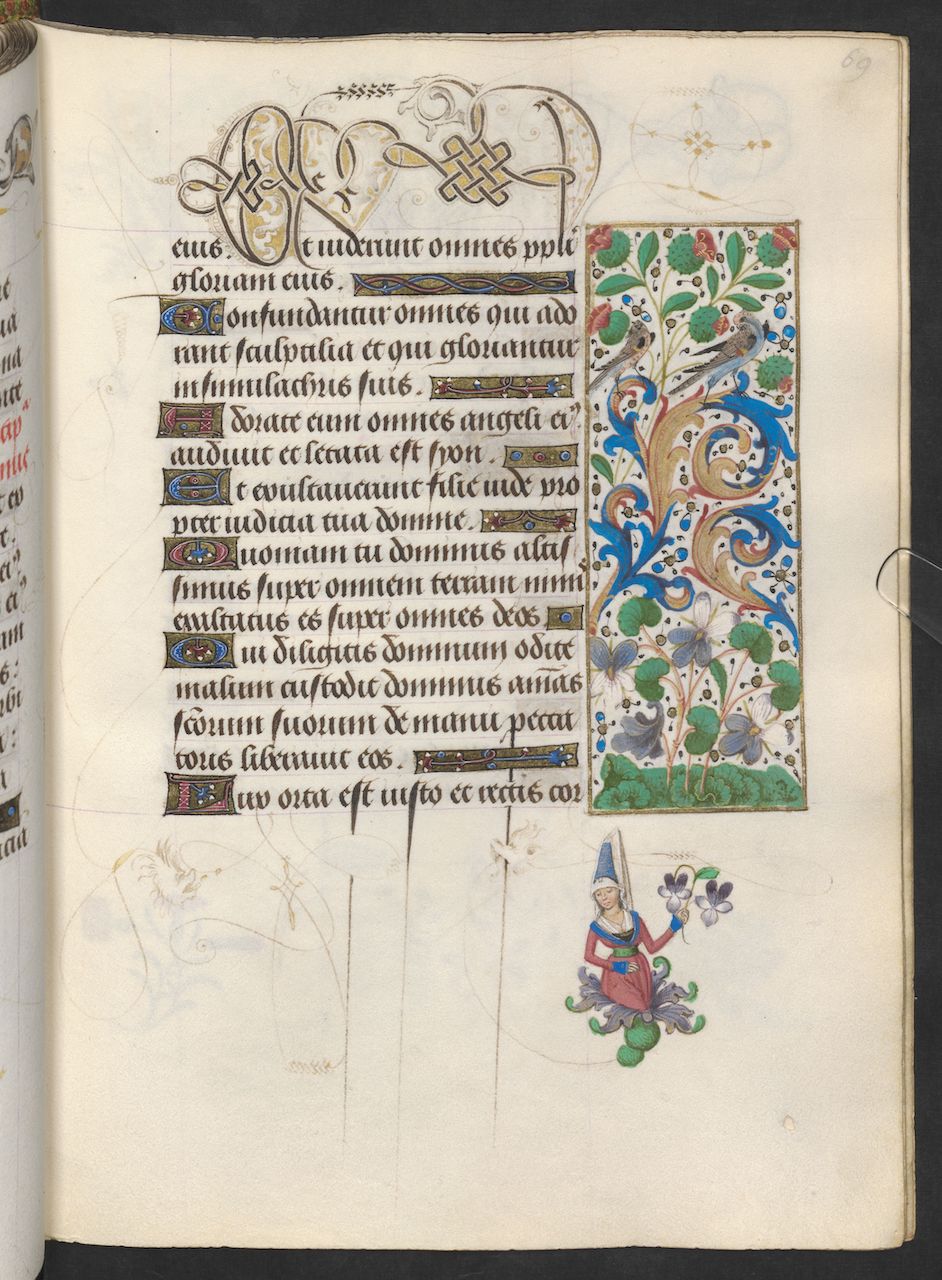 69
eius. Et uiderunt omnes ppli
gloriam eius.
Confundantur omnes qui ado
rant sculptilia et qui gloriantur
in simulachris suis.
Adorate eum omnes angeli eiꝰ
audiuit et letata est syon.
Et exultauerunt filie iude pro
pter iudicia tua domine.
Quoniam tu dominus altis
simus super omnem terram nimi
exaltatus es super omnes deos.
Qui diligitis dominum odite
malum custodit dominus aīas
scorum suorum de manu pecca
toris liberauit eos.
Lux orta est iusto et rectis cor